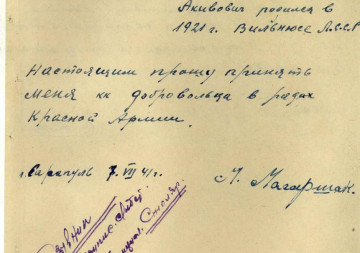 Акивович родился в
1921 г. Вильнюсе Л.С.С.Р
Настоящим прошу принять
меня кк добровольца в рядах
Красной Армии.
г. Сарапуль 7. VII 41 г. М. Магаршак.